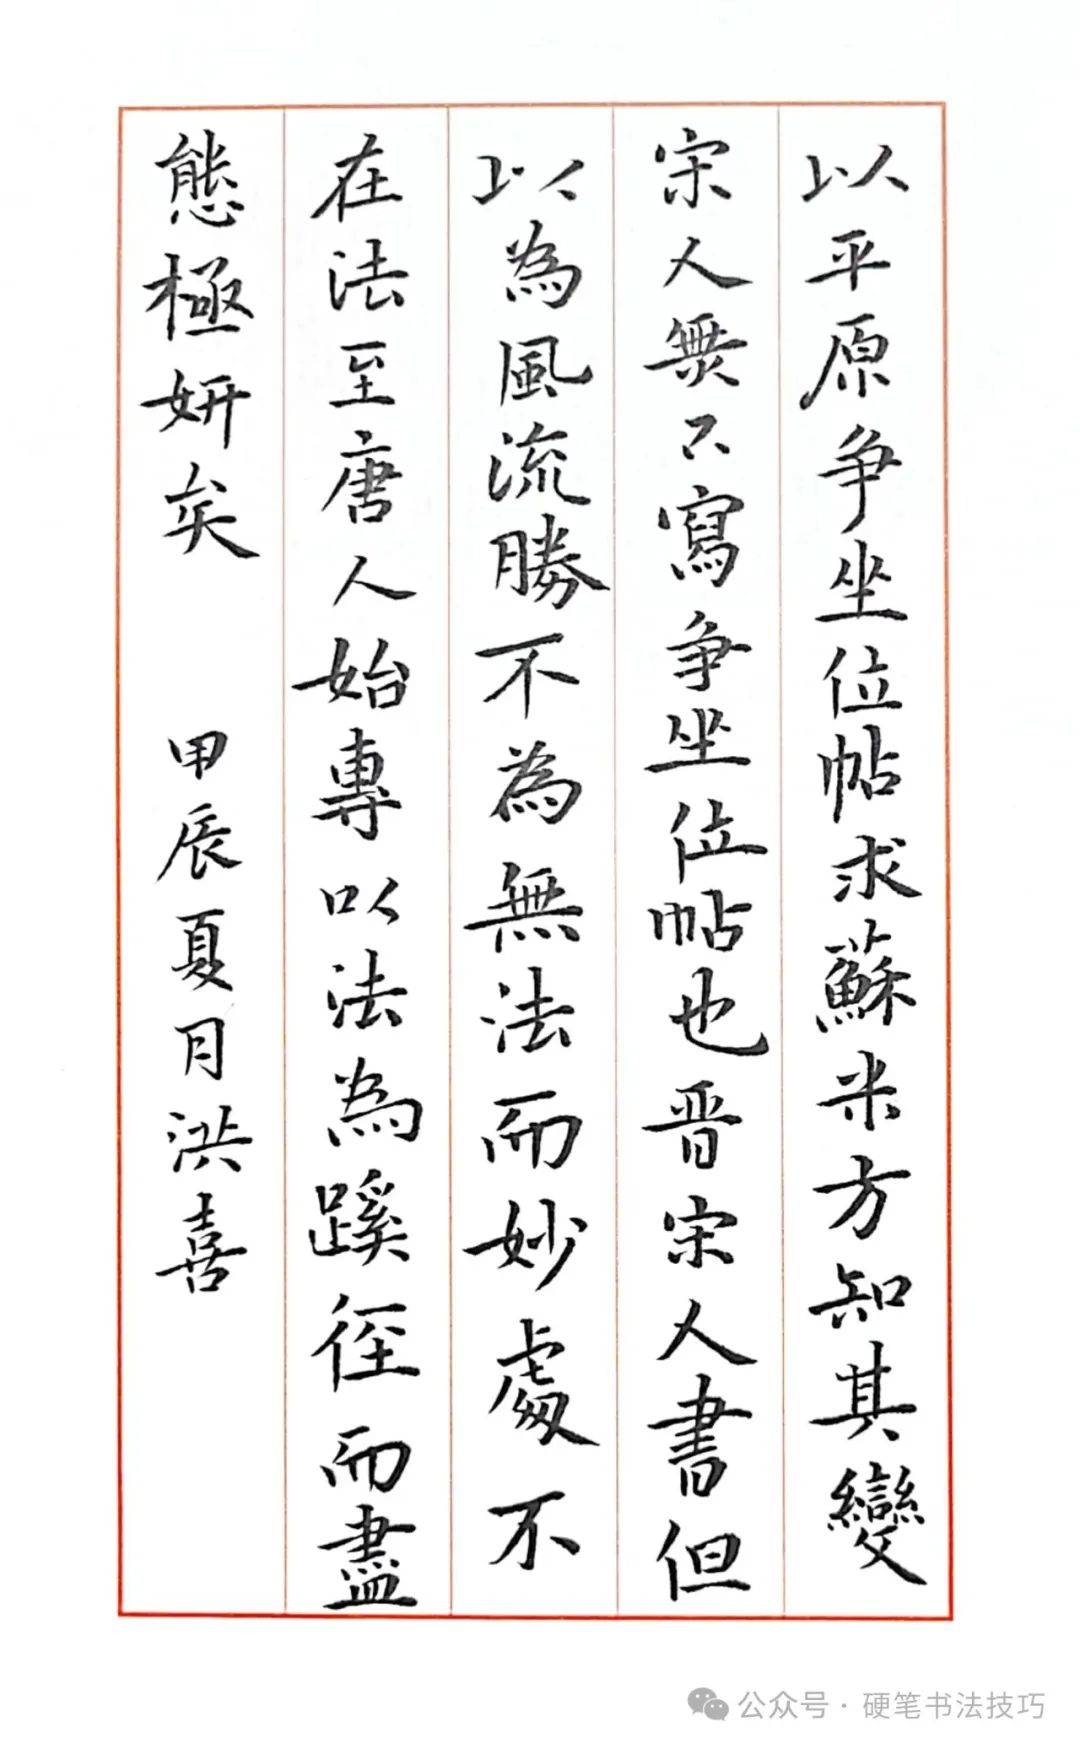 以平原争坐位帖求蘇米方知其變
宋人無不寫争坐位帖也晋宋人書但
以為風流勝不為無法而妙處不
在法至唐人始專以法為蹊徑而盡
態極妍矣 甲辰夏月洪喜
公众号·硬笔书法技巧